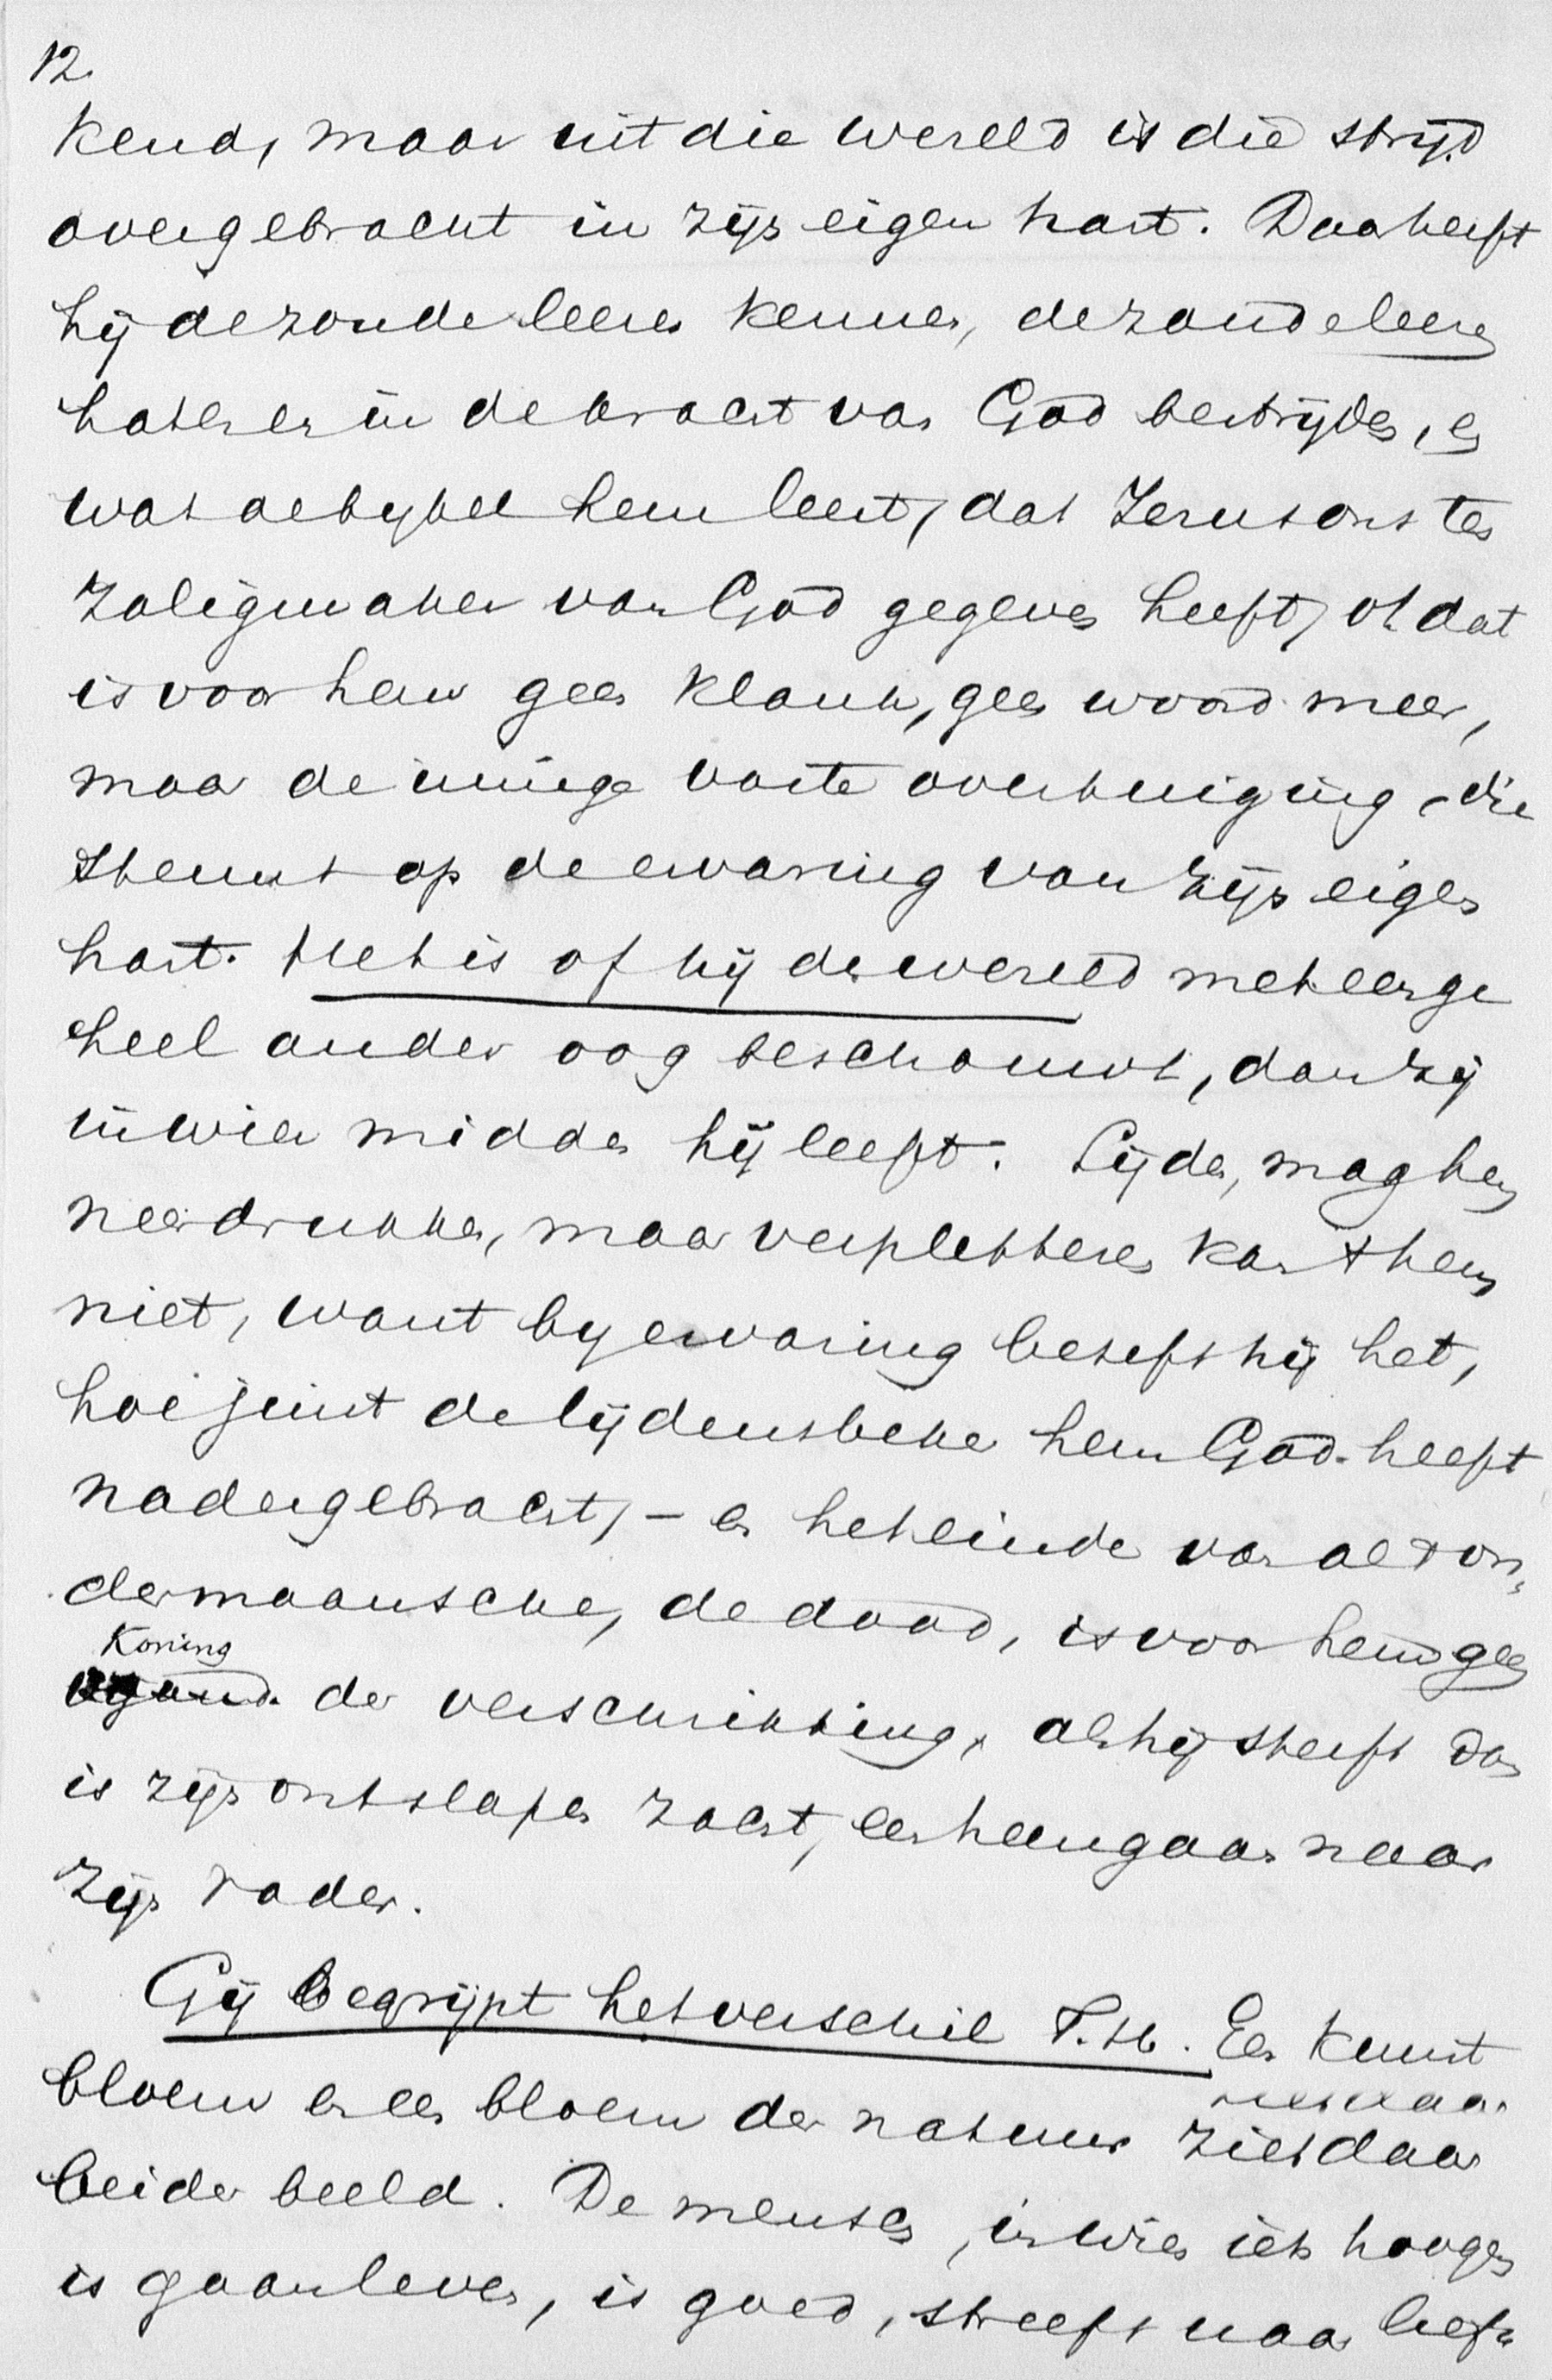 12.
kend, maar uit die wereld is die strijd
overgebracht in zijn eigen hart. Daar heeft
hij de zonde leeren kennen, de zonde leeren
haten en in de kracht van God bestrijden, en
wat de bijbel hem leert, dat Jezus ons ten
Zaligmaker van God gegeven heeft, o! dat
is voor hem geen klank, geen woord meer,
maar de innige vaste overtuiging, die
steunt op de ervaring van zijn eigen
hart. Het is of hij de wereld met een ge
heel ander oog beschouwt, dan zij
in wier midden hij leeft. Lijden, mag hem
neerdrukken, maar verpletteren kan 't hem
niet, want bij ervaring beseft hij het,
hoe juist de lijdensbeker hem God heeft
nadergebracht, – en het einde van al 't on,
dermaansche, de dood, is voor hem geen
Koning
vijand der verschrikking, als hij sterft dan
is zijn ontslapen zacht, een heengaan naar
zijn Vader.
Gij begrijpt het verschil T. H. Een kunst
bloem en een bloem der natuur ziet daar
beider beeld. De mensch, in wien iets hoogers
is gaan leven, is goed, streeft naar liefe